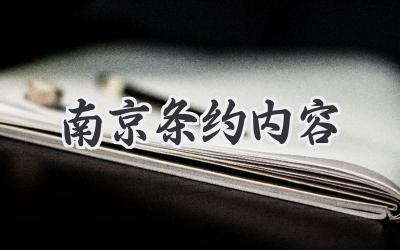 南京条约内容